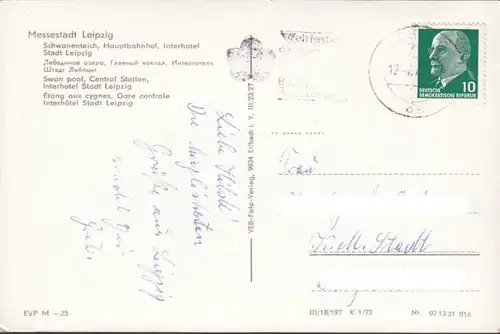 Messestadt Leipzig
Schwanenteich, Hauptbahnhof, Interhotel
Stadt Leipzig
Лебединое озеро, Главный вокзал, Интеротель
Штадт Лейпциг
Swan pool, Central Station,
Interhotel Stadt Leipzig
Étang aux cygnes, Gare centrale
Interhôtel Stadt Leipzig
Liebe
Die herzlichsten
Grüße aus Leipzig
sendet Dir
VEB-Foto-Verlag, 9934 Erlbach i. V. III/23/27
10
DEUTSCHE
DEMOKRATISCHE REPUBLIK
Frau
K.-M.-Stadt
EVP M –.25
III/18/197 K 1/72
Nr 07 13 31 016